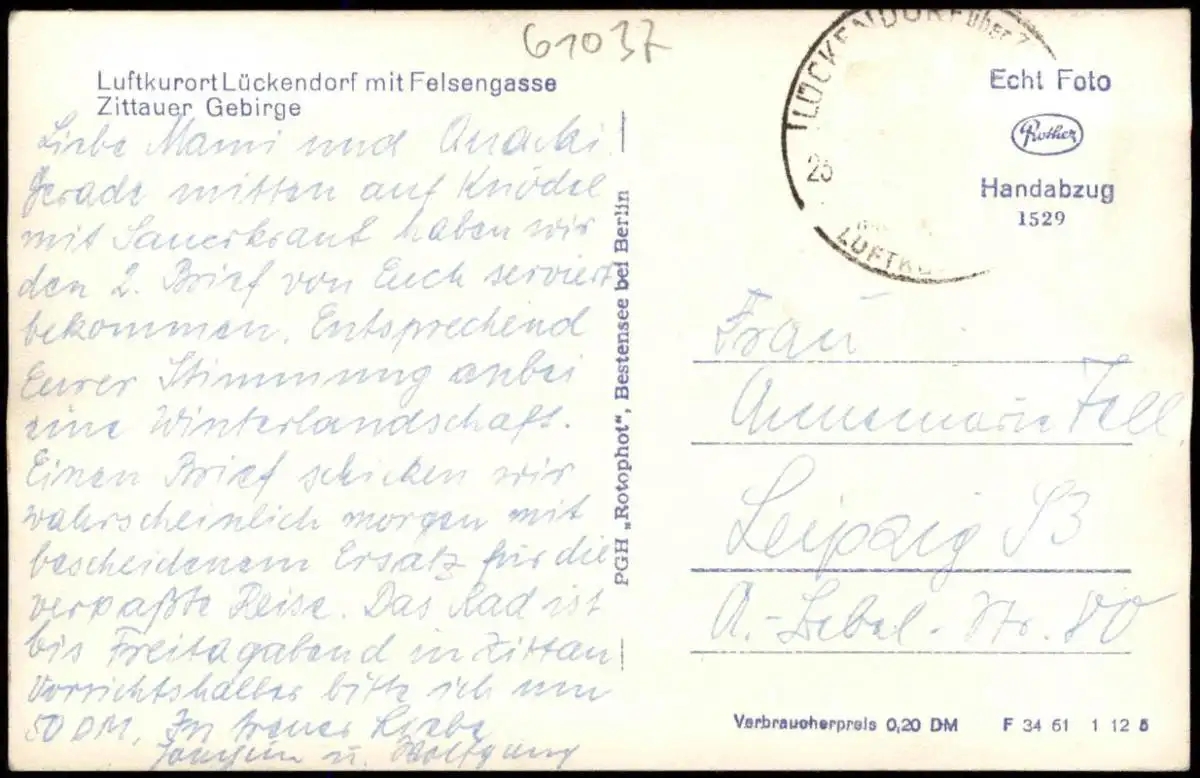 61037
Luftkurort Lückendorf mit Felsengasse
Zittauer Gebirge
Liebe Mami und
Gerade mitten auf Knödel
mit Sauerkraut haben wir
den 2. Brief von Euch serviert
bekommen. Entsprechend
Eurer Stimmung anbei
eine Winterlandschaft.
Einen Brief schicken wir
wahrscheinlich morgen mit
bescheidenem Ersatz für die
verpaßte Reise. Das Rad ist
bis Freitagabend in Zittau
Vorsichtshalber bitte ich um
50 DM. In treuer Liebe
Joachim u. Wolfgang
PGH „Rotophot", Bestensee bei Berlin
LÜCKENDORF über Z
25
LUFTKU
Echt Foto
Rother
Handabzug
1529
Frau
Annemarie Fell
Leipzig S3
A.-Bebel-Str. 80
Verbraucherpreis 0,20 DM F 34 61 1 12 5